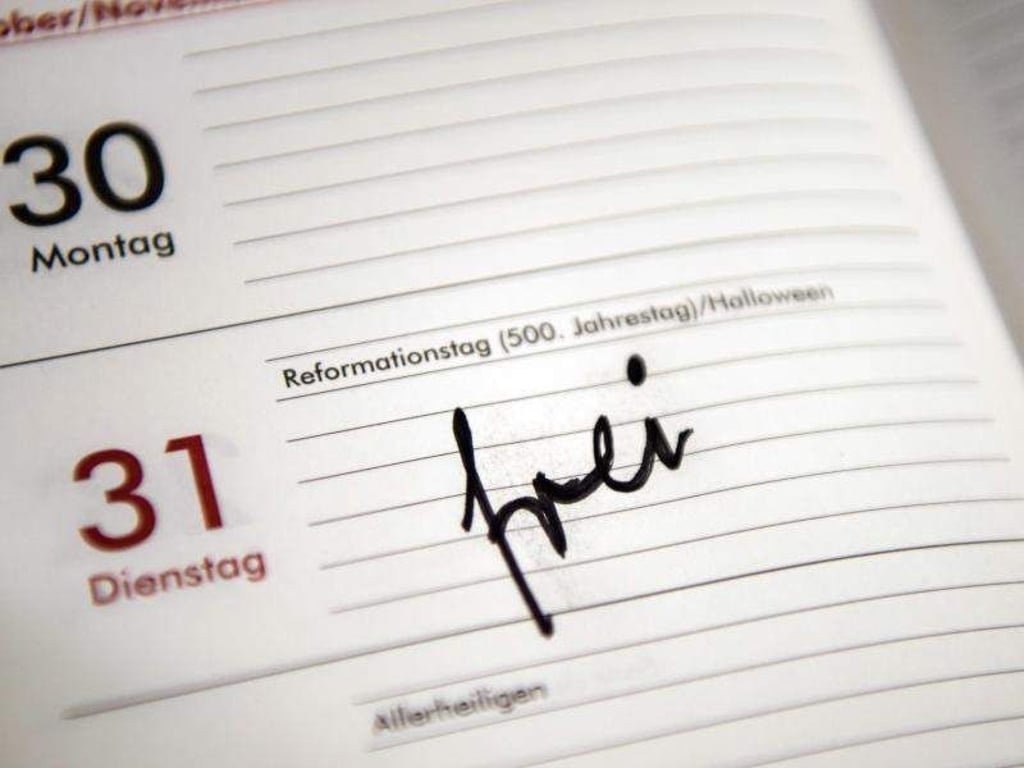 ober/Novem
30
Montag
Reformationstag (500. Jahrestag)/Halloween
31
Dienstag
frei
Allerheiligen